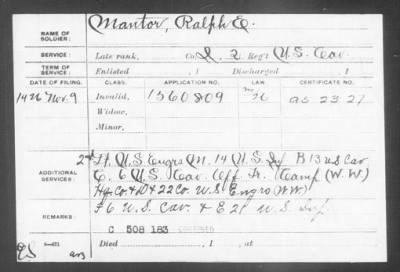 NAME OF SOLDIER: Mantor, Ralph E.
SERVICE: Late rank, Co. I, 2 Reg't U.S. Cav
TERM OF SERVICE: Enlisted , 1 Discharged , 1
DATE OF FILING. CLASS. APPLICATION NO. LAW. CERTIFICATE NO.
1926 Nov. 9 Invalid, 1560809 26 a5 23 27
Widow,
Minor,
ADDITIONAL SERVICES: 2nd Lt. U.S. Engrs M. 14 U.S. Inf B 13 U.S. Cav
E. 6 U.S. Cav. Off. Tr. Camp (W.W.)
Hq. Co. & D & 22 Co. U.S. Engrs (W.W.)
REMARKS: F 6 U.S. Cav. & E 21 U.S. Inf.
C 508 183
Died , 1 , at